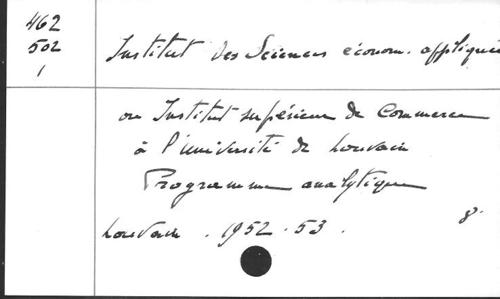 462
502
1
Institut des Sciences économ. appliquées
ou Institut supérieur de Commerce
à l'université de Louvain
Programme analytique
Louvain . 1952 . 53 . 8°